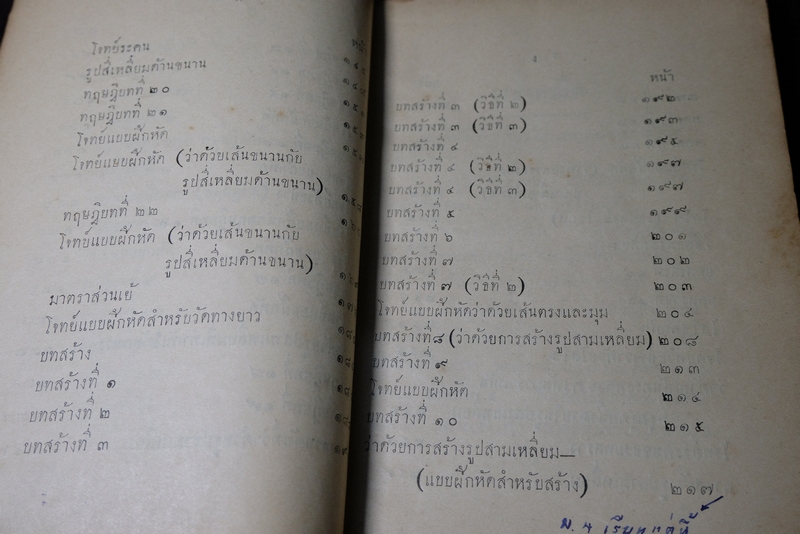 โจทย์ระคน
รูปสี่เหลี่ยมด้านขนาน
ทฤษฎีบทที่ ๒๐
ทฤษฎีบทที่ ๒๑
โจทย์แบบฝึกหัด
โจทย์แบบฝึกหัด (ว่าด้วยเส้นขนานกับ
รูปสี่เหลี่ยมด้านขนาน)
ทฤษฎีบทที่ ๒๒
โจทย์แบบฝึกหัด (ว่าด้วยเส้นขนานกับ
รูปสี่เหลี่ยมด้านขนาน)
มาตราส่วนเย้
โจทย์แบบฝึกหัดสำหรับวัดทางยาว
บทสร้าง
บทสร้างที่ ๑
บทสร้างที่ ๒
บทสร้างที่ ๓
หน้า
บทสร้างที่ ๓ (วิธีที่ ๒) ๑๙๒
บทสร้างที่ ๓ (วิธีที่ ๓) ๑๙๓
บทสร้างที่ ๔ ๑๙๕
บทสร้างที่ ๔ (วิธีที่ ๒) ๑๙๗
บทสร้างที่ ๔ (วิธีที่ ๓) ๑๙๗
บทสร้างที่ ๕ ๑๙๙
บทสร้างที่ ๖ ๒๐๑
บทสร้างที่ ๗ ๒๐๒
บทสร้างที่ ๗ (วิธีที่ ๒) ๒๐๓
โจทย์แบบฝึกหัดว่าด้วยเส้นตรงและมุม ๒๐๔
บทสร้างที่๘ (ว่าด้วยการสร้างรูปสามเหลี่ยม) ๒๐๘
บทสร้างที่ ๙ ๒๑๓
โจทย์แบบฝึกหัด ๒๑๔
บทสร้างที่ ๑๐ ๒๑๕
ว่าด้วยการสร้างรูปสามเหลี่ยม—
(แบบฝึกหัดสำหรับสร้าง) ๒๑๗